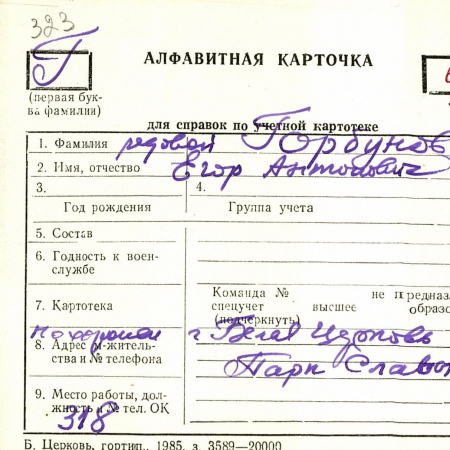 323
Г
АЛФАВИТНАЯ КАРТОЧКА
(первая бук-
ва фамилии)
для справок по учетной картотеке
1. Фамилия рядовой Горбунов
2. Имя, отчество Егор Антонович
3.
4.
Год рождения
Группа учета
5. Состав
6. Годность к воен-
службе
7. Картотека
Команда № не предназ
спецучет высшее образо
(подчеркнуть)
Похоронен г Белая Церковь
8. Адрес м-житель-
ства и № телефона
Парк Славы
9. Место работы, дол-
жность и № тел. ОК
318
Б. Церковь, гортип., 1985, з. 3589—20000